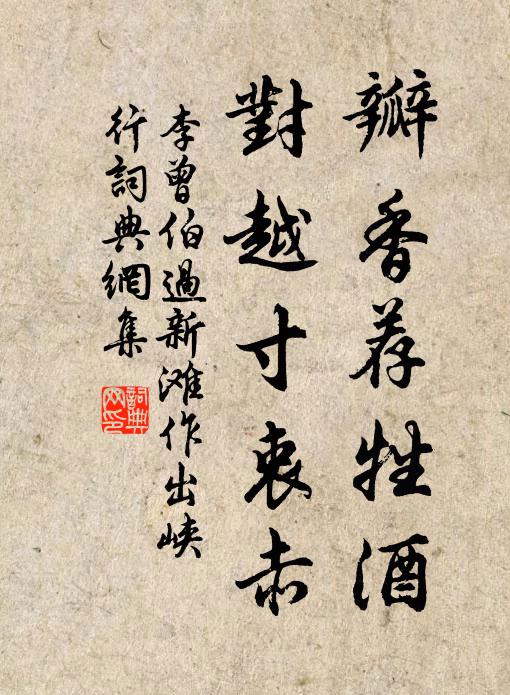 瓣香荐牲酒
對越寸衷赤
李曾伯過新滩作出峡
行詞典網集
詞典网印